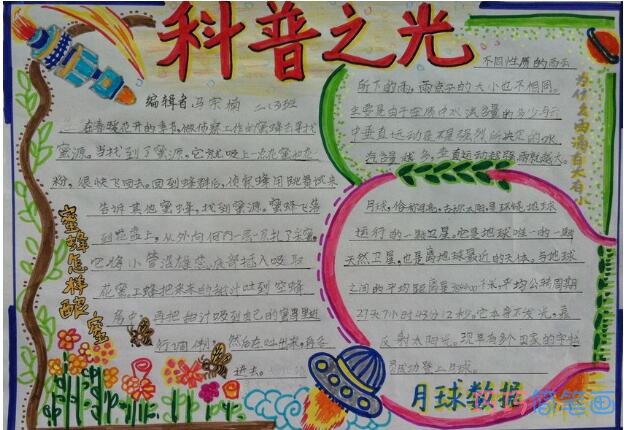 科普之光
编辑者:马宗楠 二、3班
在春暖花开的季节,做侦察工作的蜜蜂去寻找
蜜源。当找到了蜜源,它就吸上一点花蜜和花
粉,很快飞回去。回到蜂群后,侦察蜂用跳舞方式来
告诉其他蜜蜂,找到蜜源。蜜蜂飞落
到花盘上,从外向
它将小管
花蜜。工蜂把采来的甜汁吐到空蜂
房中,再把甜汁吸到自己的蜜胃里进
行调制,然后在吐出来,再
进去。
蜜蜂怎样酿蜜
不同性质的雨云
所下的雨,雨点子的大小也不相同。
主要是由于空质中水汽含量的多少与云
中垂直运动是不强烈所决定的,水
汽含量越多,垂直运动越强,雨就越大。
为什么雨滴有大有小
月球,俗称月亮,古称太阴,是环绕地球
运行的一颗卫星。它是地球唯一的一颗
天然卫星,也是离地球最近的天体,与地球
之间的平均距离是384400千米,平均公转周期
27天7小时43分12秒。它本身不发光,靠
反射太阳光。现早有多个国家的宇航
员成功登上月球。
月球数据
简笔画